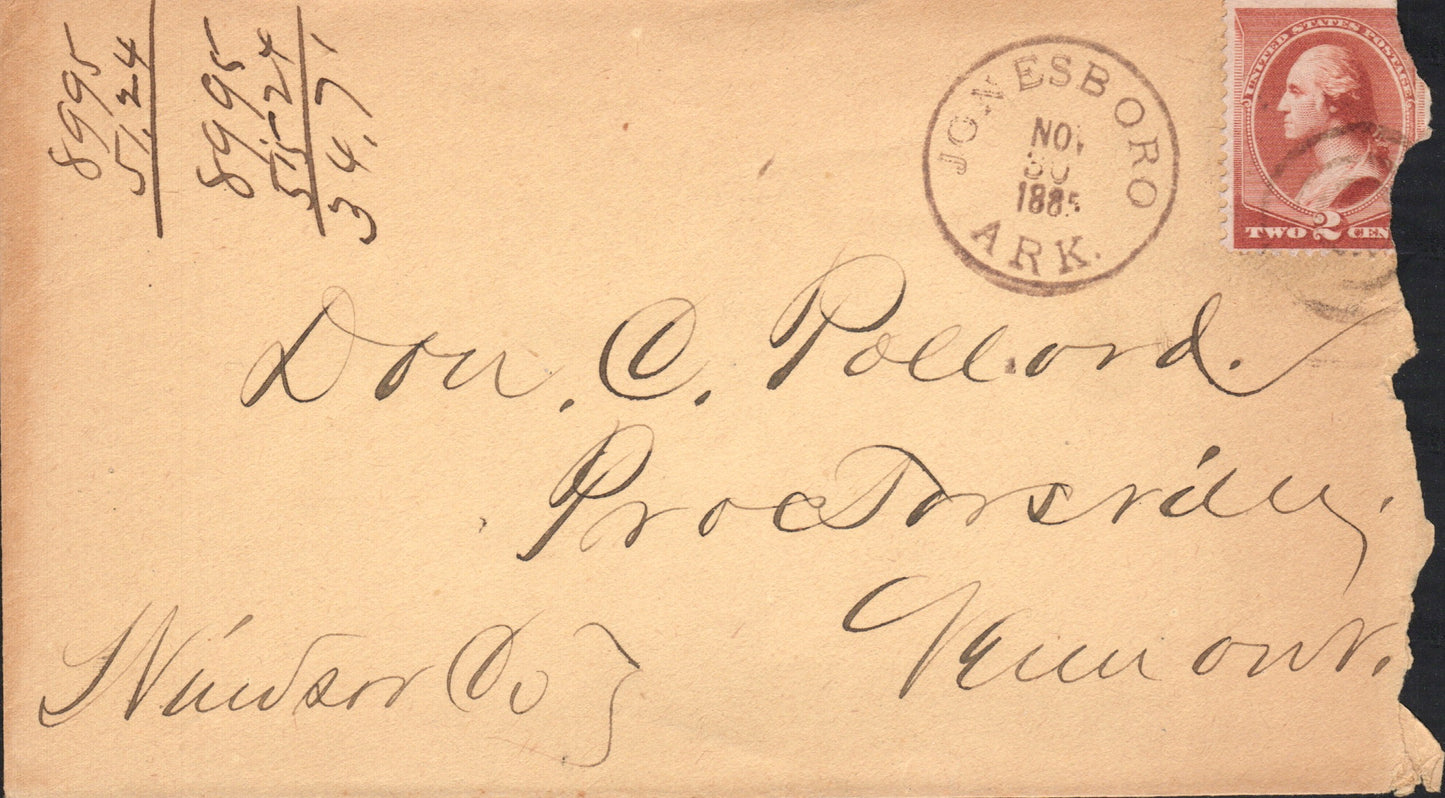 8995
51.24
8995
55.24
34.71
JONESBORO
NOV
30
1885
ARK.
UNITED STATES POSTAGE
TWO 2 CEN
Don. C. Pollard.
Proctorsville,
Vermont.
Windsor Co